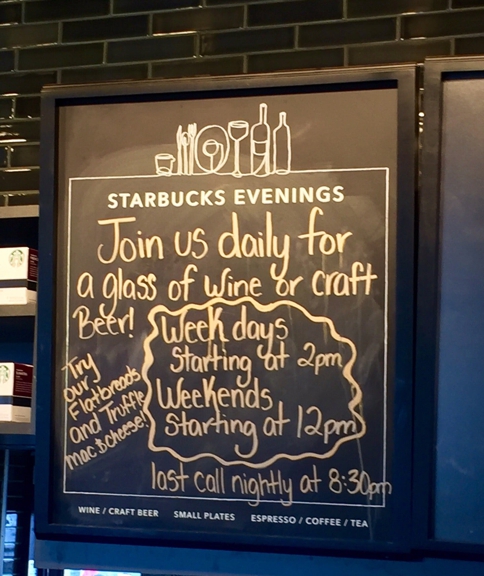 STARBUCKS EVENINGS
Join us daily for
a glass of wine or craft
Beer!
Week days
Starting at 2pm
Weekends
Starting at 12pm
Try
our
Flatbreads
and Truffle
mac & cheese!
last call nightly at 8:30pm
WINE / CRAFT BEER SMALL PLATES ESPRESSO / COFFEE / TEA